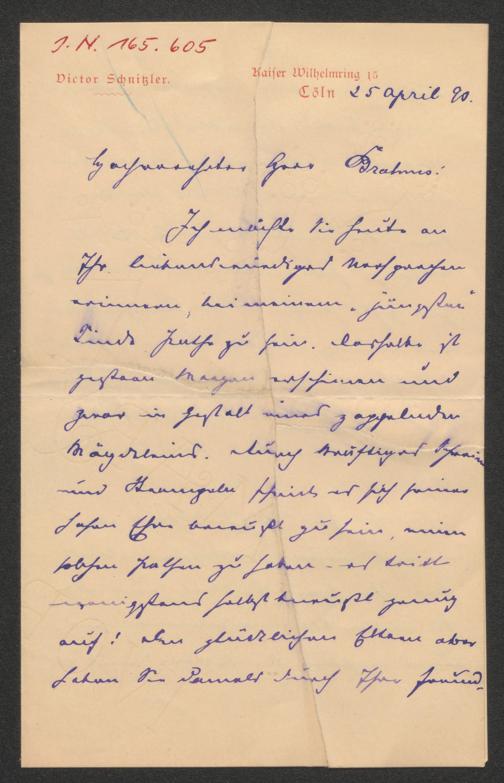 J. N. 165.605
Victor Schnitzler.
Kaiser Wilhelmring 15
Cöln 25 April 90.
Hochverehrter Herr Brahms!
Ich möchte Sie heute an
Ihr liebenswürdiges Versprechen
erinnern, bei meinem „jüngsten“
Kinde Pathe zu sein. Dasselbe ist
gestern Morgen erschienen und
zwar in Gestalt eines zappelnden
Mägdeleins. Durch kräftiges Schreien
und Strampeln scheint es sich seiner
hohen Ehre bewußt zu sein, einen
solchen Pathen zu haben – es tritt
wenigstens selbstbewußt genug
auf! Den glücklichen Eltern aber
haben Sie damals durch Ihre freund-